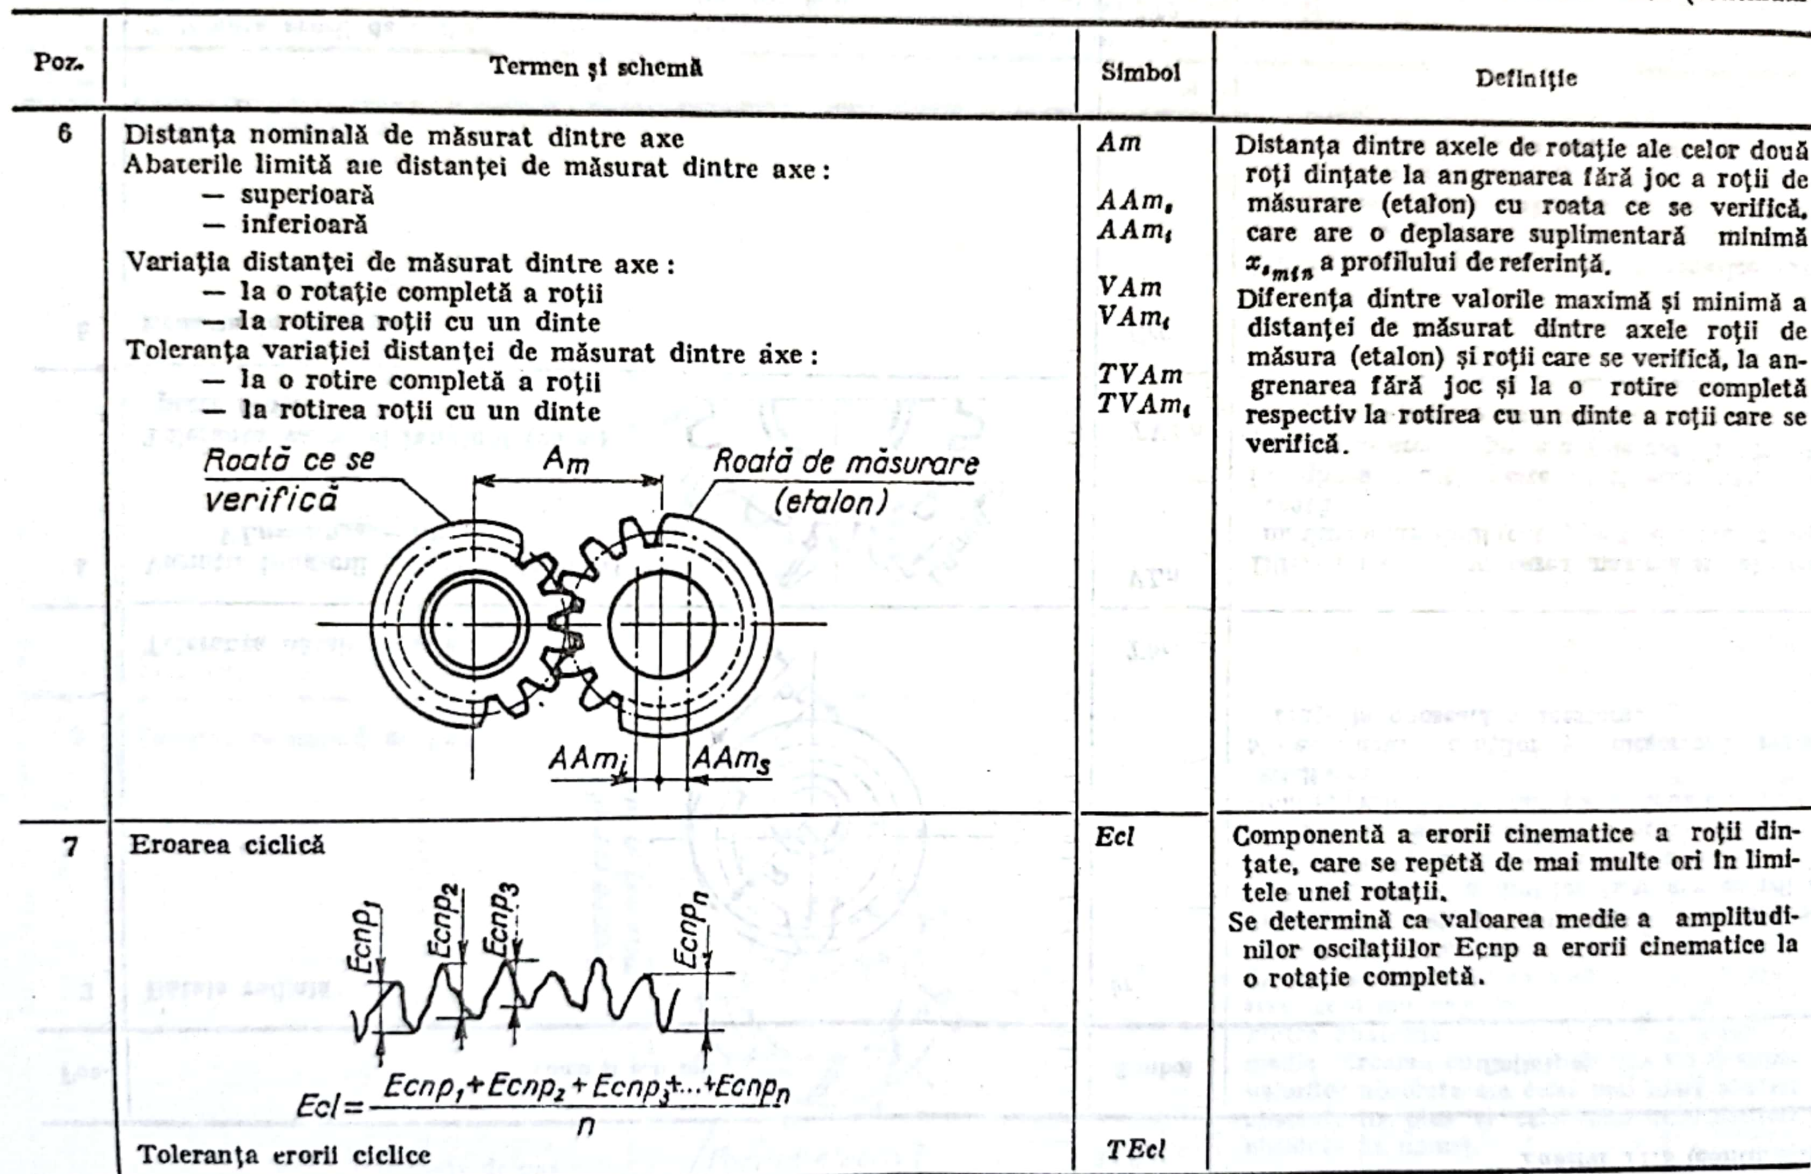 Poz.
Termen și schemă
Simbol
Definiție
6
Distanța nominală de măsurat dintre axe
Abaterile limită ale distanței de măsurat dintre axe :
— superioară
— inferioară
Variația distanței de măsurat dintre axe :
— la o rotație completă a roții
— la rotirea roții cu un dinte
Toleranța variației distanței de măsurat dintre axe :
— la o rotire completă a roții
— la rotirea roții cu un dinte
Am
AAmₛ
AAmᵢ
VAm
VAmᵢ
TVAm
TVAmᵢ
Distanța dintre axele de rotație ale celor două
roți dințate la angrenarea fără joc a roții de
măsurare (etalon) cu roata ce se verifică,
care are o deplasare suplimentară minimă
xₛ min a profilului de referință.
Diferența dintre valorile maximă și minimă a
distanței de măsurat dintre axele roții de
măsura (etalon) și roții care se verifică, la an-
grenarea fără joc și la o rotire completă
respectiv la rotirea cu un dinte a roții care se
verifică.
Roată ce se
verifică
Am
Roată de măsurare
(etalon)
AAmᵢ
AAmₛ
7
Eroarea ciclică
Ecl
Componentă a erorii cinematice a roții din-
țate, care se repetă de mai multe ori în limi-
tele unei rotații.
Se determină ca valoarea medie a amplitudi-
nilor oscilațiilor Ecnp a erorii cinematice la
o rotație completă.
Ecnp₁
Ecnp₂
Ecnp₃
Ecnpₙ
Ecl = Ecnp₁ + Ecnp₂ + Ecnp₃ +...+ Ecnpₙ
n
Toleranța erorii ciclice
TEcl